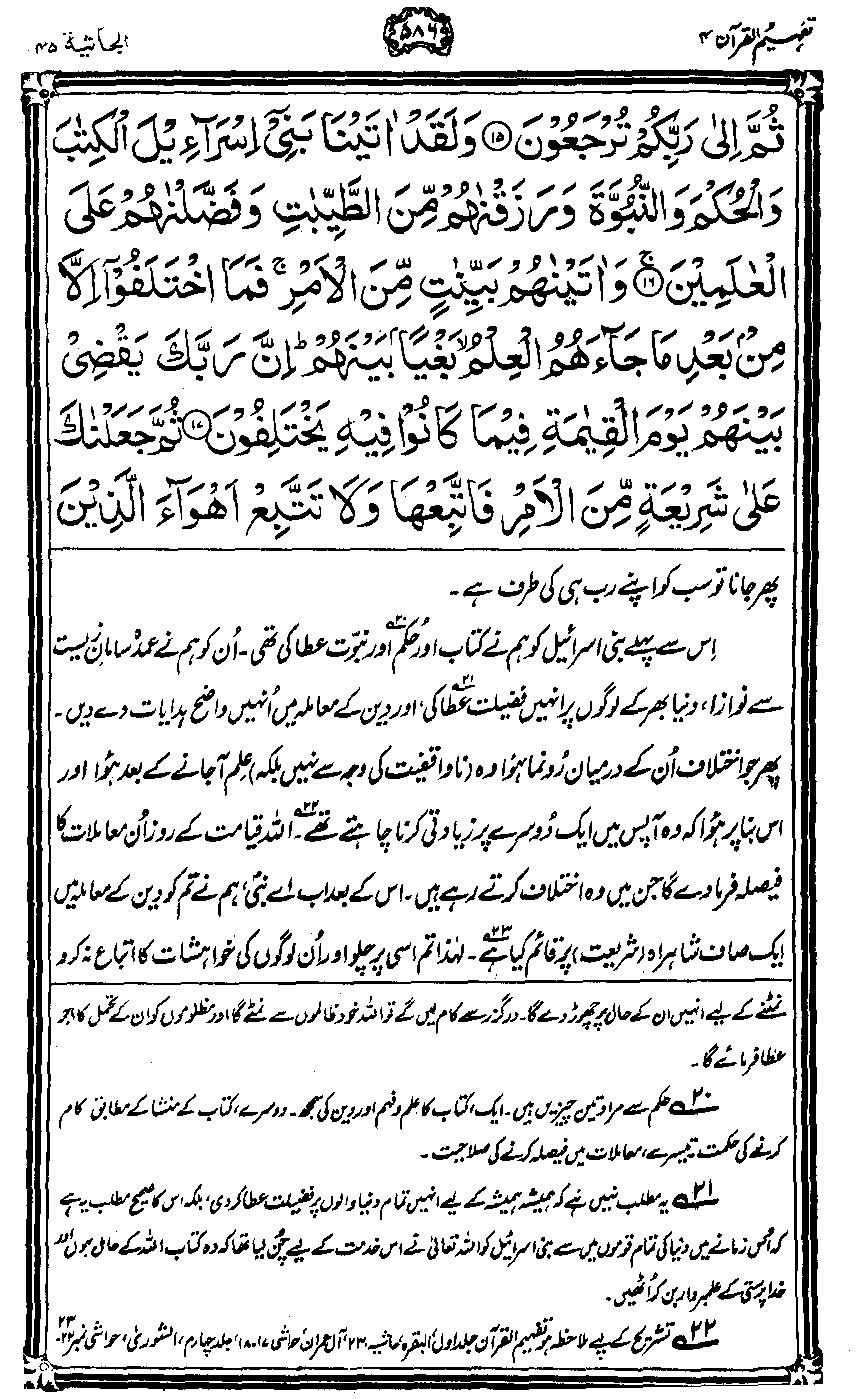 تفہیم القرآن ۴
۵۸۶
الجاثیۃ ۴۵
ثُمَّ اِلٰى رَبِّكُمْ تُرْجَعُوْنَ ﴿۱۵﴾ وَلَقَدْ اٰتَيْنَا بَنِيْٓ اِسْرَآءِيْلَ الْكِتٰبَ
وَالْحُكْمَ وَالنُّبُوَّةَ وَرَزَقْنٰهُمْ مِّنَ الطَّيِّبٰتِ وَفَضَّلْنٰهُمْ عَلَى
الْعٰلَمِيْنَ ﴿۱۶﴾ۚ وَاٰتَيْنٰهُمْ بَيِّنٰتٍ مِّنَ الْاَمْرِۚ فَمَا اخْتَلَفُوْٓا اِلَّا
مِنْۢ بَعْدِ مَا جَآءَهُمُ الْعِلْمُۙ بَغْيًاۢ بَيْنَهُمْؕ اِنَّ رَبَّكَ يَقْضِيْ
بَيْنَهُمْ يَوْمَ الْقِيٰمَةِ فِيْمَا كَانُوْا فِيْهِ يَخْتَلِفُوْنَ ﴿۱۷﴾ ثُمَّ جَعَلْنٰكَ
عَلٰى شَرِيْعَةٍ مِّنَ الْاَمْرِ فَاتَّبِعْهَا وَلَا تَتَّبِعْ اَهْوَآءَ الَّذِيْنَ
پھر جانا تو سب کو اپنے رب ہی کی طرف ہے۔
اِس سے پہلے بنی اسرائیل کو ہم نے کتاب اور حُکم۲۰ اور نبوّت عطا کی تھی۔ اُن کو ہم نے عمدہ سامانِ زیست
سے نوازا، دنیا بھر کے لوگوں پر انہیں فضیلت عطا۲۱ کی، اور دین کے معاملہ میں اُنہیں واضح ہدایات دے دیں۔
پھر جو اختلاف اُن کے درمیان رُونما ہؤا وہ (ناواقفیت کی وجہ سے نہیں بلکہ) علم آجانے کے بعد ہؤا اور
اس بنا پر ہؤا کہ وہ آپس میں ایک دُوسرے پر زیادتی کرنا چاہتے تھے۲۲۔ اللہ قیامت کے روز اُن معاملات کا
فیصلہ فرما دے گا جن میں وہ اختلاف کرتے رہے ہیں۔ اس کے بعد اب اے نبیؐ، ہم نے تم کو دین کے معاملہ میں
ایک صاف شاہراہ (شریعت) پر قائم کیا ہے۲۳۔ لہٰذا تم اسی پر چلو اور اُن لوگوں کی خواہشات کا اتباع نہ کرو
نمٹنے کے لیے انہیں ان کے حال پر چھوڑ دے گا۔ درگزر سے کام لیں گے تو اللہ خود ظالموں سے نمٹے گا اور مظلوموں کو ان کے تحمل کا اجر
عطا فرمائے گا۔
۲۰ حکم سے مراد تین چیزیں ہیں۔ ایک، کتاب کا علم و فہم اور دین کی سمجھ۔ دوسرے، کتاب کے منشا کے مطابق کام
کرنے کی حکمت۔ تیسرے، معاملات میں فیصلہ کرنے کی صلاحیت۔
۲۱ یہ مطلب نہیں ہے کہ ہمیشہ ہمیشہ کے لیے انہیں تمام دنیا والوں پر فضیلت عطا کر دی، بلکہ اس کا صحیح مطلب یہ ہے
کہ اُس زمانے میں دنیا کی تمام قوموں میں سے بنی اسرائیل کو اللہ تعالیٰ نے اس خدمت کے لیے چُن لیا تھا کہ وہ کتاب اللہ کے حامل ہوں اور
خدا پرستی کے علمبردار بن کر اُٹھیں۔
۲۲ تشریح کے لیے ملاحظہ ہو تفہیم القرآن جلد اول، البقرہ، حاشیہ ۲۳۰، آل عمران، حواشی ۱۷-۱۸، جلد چہارم، الشوریٰ، حواشی نمبر ۲۲-۲۳